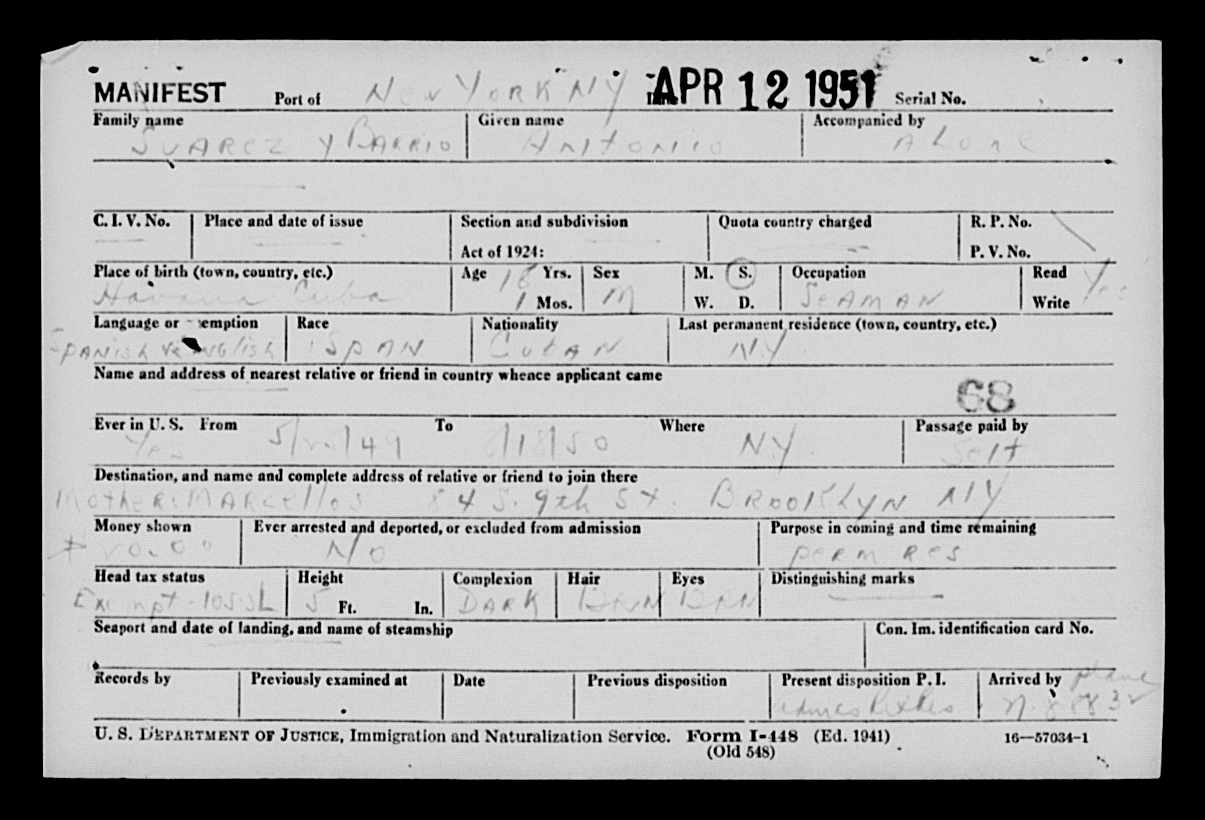 MANIFEST Port of New York NY APR 12 1951 Serial No.
Family name Given name Accompanied by
Suarez y Barrio Antonio Alone
C. I. V. No. Place and date of issue Section and subdivision Quota country charged R. P. No.
Act of 1924: P. V. No.
Place of birth (town, country, etc.) Age 18 Yrs. Sex M. S. Occupation Read Yes
Havana Cuba 1 Mos. M W. D. SEAMAN Write
Language or exemption Race Nationality Last permanent residence (town, country, etc.)
Spanish English SPAN Cuban NY
Name and address of nearest relative or friend in country whence applicant came
68
Ever in U. S. From To Where Passage paid by
Yes 49 18/50 NY Self
Destination, and name and complete address of relative or friend to join there
Mother: Marcellos 84 S. 9th St. Brooklyn NY
Money shown Ever arrested and deported, or excluded from admission Purpose in coming and time remaining
No perm res
Head tax status Height Complexion Hair Eyes Distinguishing marks
Exempt 5 Ft. In. DARK BRN BRN
Seaport and date of landing, and name of steamship Con. Im. identification card No.
Records by Previously examined at Date Previous disposition Present disposition P. I. Arrived by plane
U. S. DEPARTMENT OF JUSTICE, Immigration and Naturalization Service. Form I-448 (Ed. 1941) 16—57034-1
(Old 548)